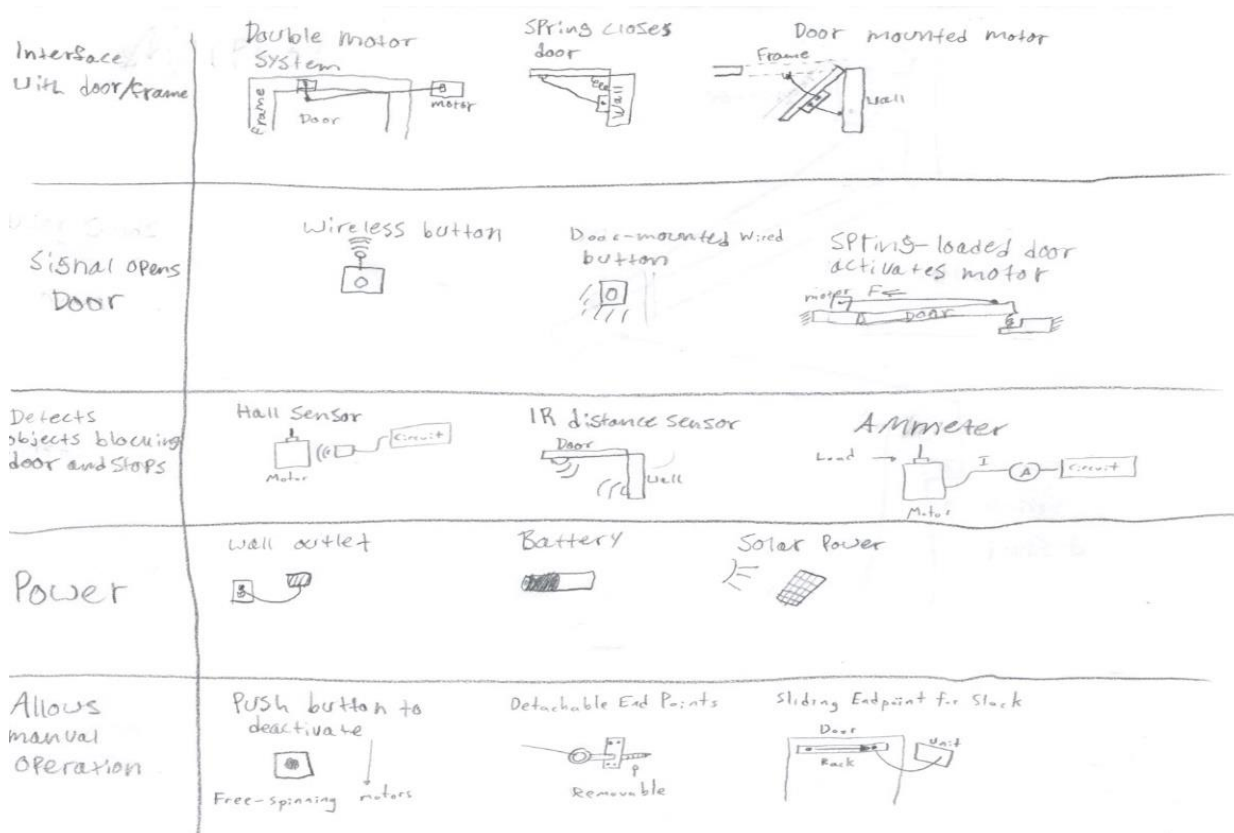 Interface
with door/frame
Double motor
system
Frame
Door
motor
Spring closes
door
Wall
Door mounted motor
Frame
Wall
Signal opens
Door
Wireless button
Door-mounted Wired
button
Spring-loaded door
activates motor
motor
F
Door
Detects
objects blocking
door and stops
Hall Sensor
Motor
Circuit
IR distance sensor
Door
Wall
Ammeter
Load
I
A
Circuit
Motor
Power
Wall outlet
Battery
Solar Power
Allows
manual
operation
Push button to
deactivate
Free-spinning motors
Detachable End Points
Removable
Sliding Endpoint for Slack
Door
Rack
Unit